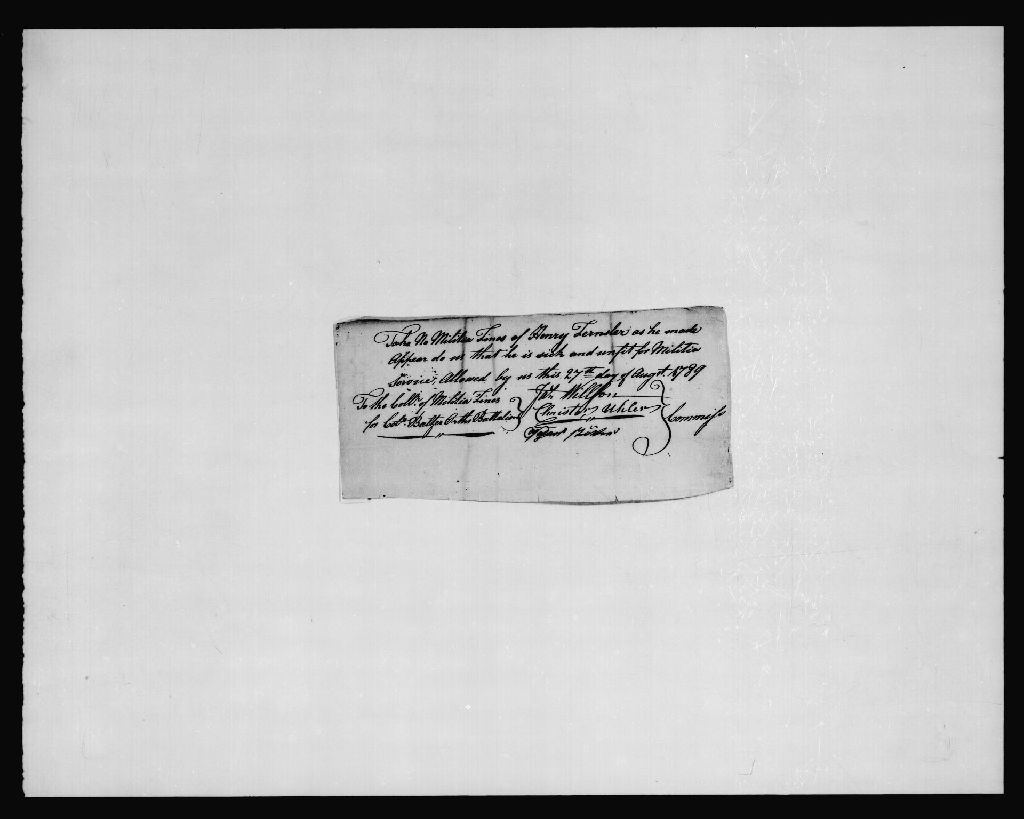 Take No Militia Fines of Henry Fernsler as he made
Appear to us that he is sick and unfit for Militia
Service, Allowed by us this 27th day of Augt. 1789
To the Collr. of Militia Fines
for Col.
Battalion
Jas. Willson
Christor. Uhler
Commiss